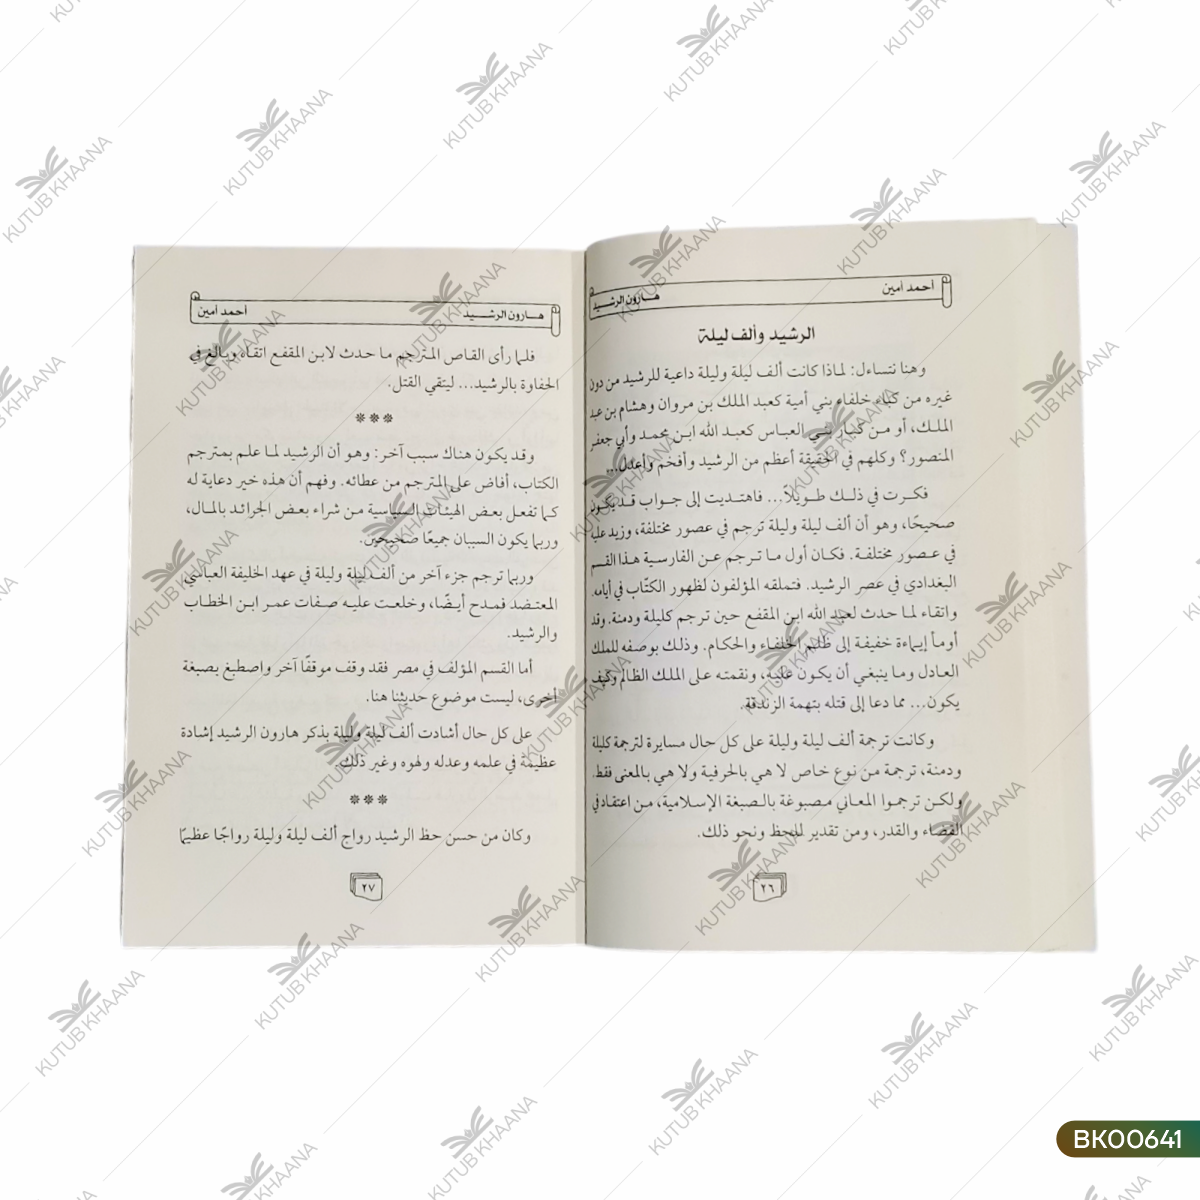 أحمد أمين
هارون الرشيد
الرشيد وألف ليلة
وهنا نتساءل: لماذا كانت ألف ليلة وليلة داعية للرشيد من دون
غيره من كبار خلفاء بني أمية كعبد الملك بن مروان وهشام بن عبد
الملك، أو من كبار بني العباس كعبد الله ابن محمد وأبي جعفر
المنصور؟ وكلهم في الحقيقة أعظم من الرشيد وأفخم وأعدل...
فكرت في ذلك طويلاً... فاهتديت إلى جواب قد يكون
صحيحًا، وهو أن ألف ليلة وليلة ترجم في عصور مختلفة، وزيد عليه
في عصور مختلفة. فكان أول ما ترجم عن الفارسية هذا القسم
البغدادي في عصر الرشيد. فتملقه المؤلفون لظهور الكتّاب في أيامه.
واتقاء لما حدث لعبد الله ابن المقفع حين ترجم كليلة ودمنة. وقد
أومأ إيماءة خفيفة إلى ظلم الخلفاء والحكام. وذلك بوصفه للملك
العادل وما ينبغي أن يكون عليه، ونقمته على الملك الظالم وكيف
يكون... مما دعا إلى قتله بتهمة الزندقة.
وكانت ترجمة ألف ليلة وليلة على كل حال مسايرة لترجمة كليلة
ودمنة، ترجمة من نوع خاص لا هي بالحرفية ولا هي بالمعنى فقط.
ولكن ترجموا المعاني مصبوغة بالصبغة الإسلامية، من اعتقاد في
القضاء والقدر، ومن تقدير للحظ ونحو ذلك.
٢٦
هارون الرشيد
أحمد أمين
فلما رأى القاص المترجم ما حدث لابن المقفع اتقاه وبالغ في
الحفاوة بالرشيد... ليتقي القتل.
***
وقد يكون هناك سبب آخر: وهو أن الرشيد لما علم بمترجم
الكتاب، أفاض على المترجم من عطائه. وفهم أن هذه خير دعاية له
كما تفعل بعض الهيئات السياسية من شراء بعض الجرائد بالمال،
وربما يكون السببان جميعًا صحيحين.
وربما ترجم جزء آخر من ألف ليلة وليلة في عهد الخليفة العباسي
المعتضد فمدح أيضًا، وخلعت عليه صفات عمر ابن الخطاب
والرشيد.
أما القسم المؤلف في مصر فقد وقف موقفًا آخر واصطبغ بصبغة
أخرى، ليست موضوع حديثنا هنا.
على كل حال أشادت ألف ليلة وليلة بذكر هارون الرشيد إشادة
عظيمة في علمه وعدله ولهوه وغير ذلك.
***
وكان من حسن حظ الرشيد رواج ألف ليلة وليلة رواجًا عظيمًا
٢٧
KUTUB KHAANA
BK00641